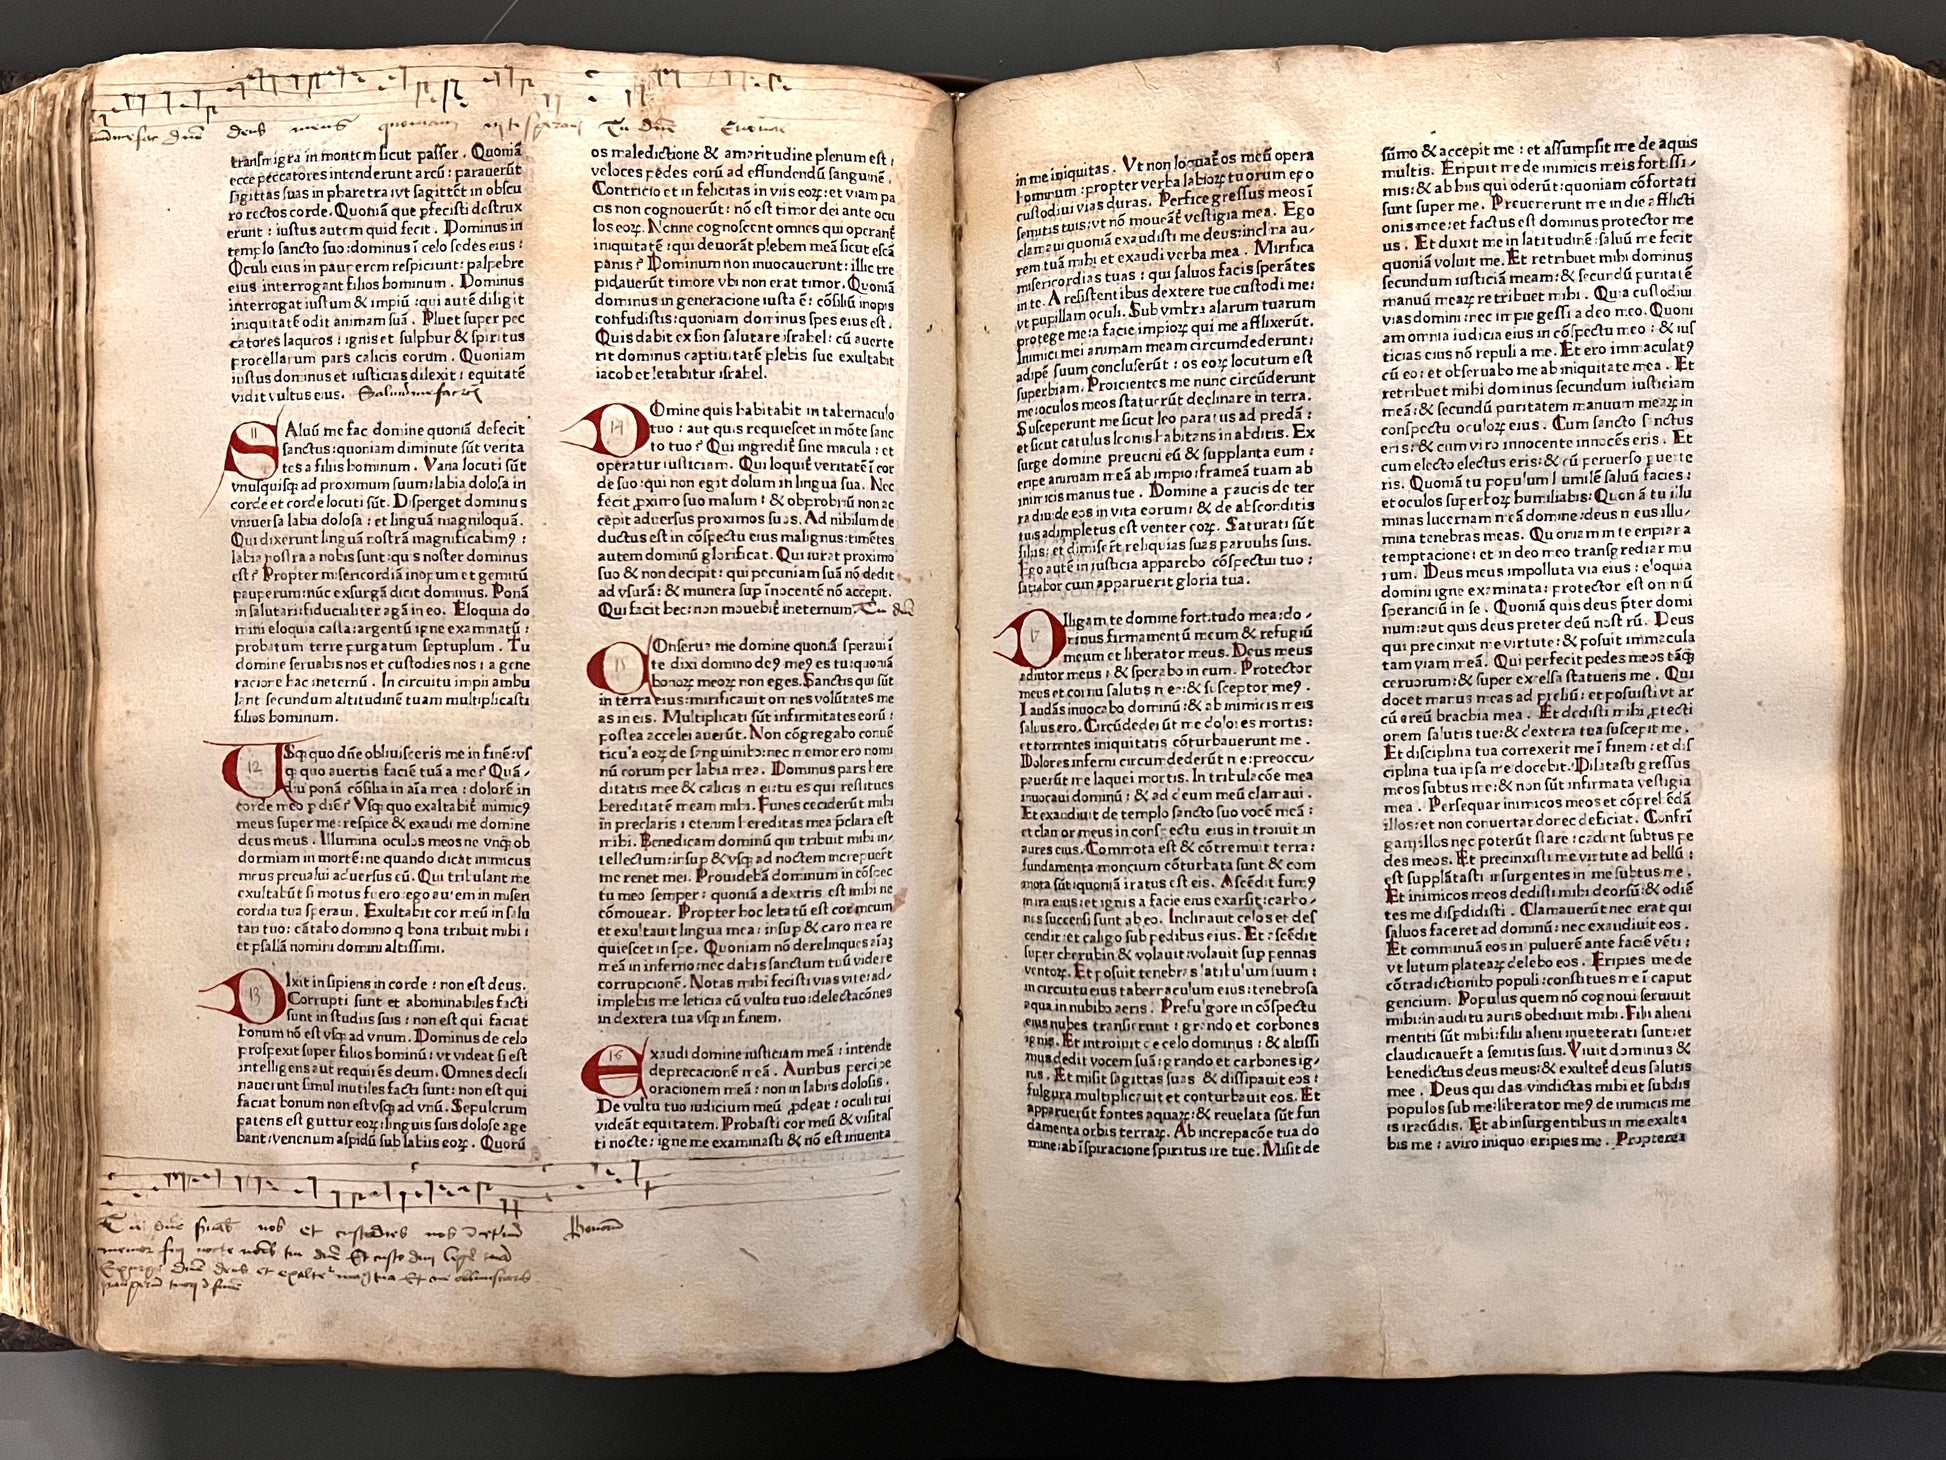 deus meus quoniam
transmigra in montem sicut passer . Quoniā
ecce peccatores intenderunt arcū : parauerūt
sagittas suas in pharetra : vt sagittēt in obscu
ro rectos corde. Quoniā que ꝑfecisti destrux
erunt : iustus autem quid fecit . Dominus in
templo sancto suo : dominus ī celo sedes eius :
Oculi eius in pauperem respiciunt : palpebre
eius interrogant filios hominum . Dominus
interrogat iustum & impiū : qui autē diligit
iniquitatē odit animam suā . Pluet super pec
catores laqueos : ignis et sulphur & spiritus
procellarum pars calicis eorum . Quoniam
iustus dominus et iusticias dilexit : equitatē
vidit vultus eius.
11
SAluū me fac domine quoniā defecit
sanctus : quoniam diminute sūt verita
tes a filiis hominum . Vana locuti sūt
vnusquisqꝫ ad proximum suum : labia dolosa in
corde et corde locuti sūt. Disperget dominus
vniuersa labia dolosa : et linguā magniloquā.
Qui dixerunt linguā nostrā magnificabimꝯ :
labia nostra a nobis sunt : quis noster dominus
est ? Propter misericordiā inopum et gemitū
pauperum : nūc exsurgā dicit dominus. Ponā
in salutari : fiducialiter agā in eo. Eloquia do
mini eloquia casta : argentū igne examinatū :
probatum terre purgatum septuplum . Tu
domine seruabis nos et custodies nos : a gene
racione hac ineternū . In circuitu impii ambu
lant secundum altitudinē tuam multiplicasti
filios hominum.
12
USqꝫ quo dn̄e obliuisceris me in finē : vs
qꝫ quo auertis faciē tuā a me ? Quā-
diu ponā cōsilia in aīa mea : dolorē in
corde meo ꝑ diē ? Vsqꝫ quo exaltabit̄ inimicꝯ
meus super me : respice & exaudi me domine
deus meus . Illumina oculos meos ne vnqꝫ ob
dormiam in mortē : ne quando dicāt inimicus
meus preualui aduersus eū. Qui tribulant me
exultabūt si motus fuero : ego autem in miseri
cordia tua speraui . Exultabit cor meū in salu
tari tuo : cātabo domino q̄ bona tribuit mihi :
et psallā nomini domini altissimi.
13
DIxit insipiens in corde : non est deus.
Corrupti sunt et abominabiles facti
sunt in studiis suis : non est qui faciat
bonum nō est vsqꝫ ad vnum . Dominus de celo
prospexit super filios hominū : vt videat si est
intelligens aut requirēs deum. Omnes decli
nauerunt simul inutiles facti sunt : non est qui
faciat bonum non est vsqꝫ ad vnū. Sepulcrum
patens est guttur eoꝝ : linguis suis dolose age
bant : venenum aspidū sub labiis eoꝝ. Quorū
os maledictione & amaritudine plenum est :
veloces pedes eorū ad effundendū sanguinē.
Contricio et infelicitas in viis eoꝝ : et viam pa
cis non cognouerūt : nō est timor dei ante ocu
los eoꝝ. Nonne cognoscent omnes qui operant̄
iniquitatē : qui deuorāt plebem meā sicut escā
panis ? Dominum non inuocauerunt : illic tre
pidauerūt timore vbi non erat timor. Quoniā
dominus in generacione iusta ē : cōsiliū inopis
confudistis : quoniam dominus spes eius est.
Quis dabit ex sion salutare israhel : cū auerte
rit dominus captiuitatē plebis sue exultabit
iacob et letabitur israhel.
14
DOmine quis habitabit in tabernaculo
tuo : aut quis requiescet in mōte sanc
to tuo ? Qui ingredit̄ sine macula : et
operatur iusticiam. Qui loquit̄ veritatē ī cor
de suo : qui non egit dolum in lingua sua. Nec
fecit ꝓximo suo malum : & obprobriū non ac
cepit aduersus proximos suos. Ad nihilum de
ductus est in cōspectu eius malignus : timētes
autem dominū glorificat. Qui iurat proximo
suo & non decipit : qui pecuniam suā nō dedit
ad vsurā : & munera sup īnocentē nō accepit.
Qui facit hec : non mouebit̄ ineternum.
15
COnserua me domine quoniā speraui ī
te dixi domino deꝯ meꝯ es tu : quoniā
bonoꝝ meoꝝ non eges. Sanctis qui sūt
in terra eius : mirificauit omnes volūtates me
as in eis. Multiplicati sūt infirmitates eorū :
postea accelerauerūt. Non cōgregabo conuē
ticula eoꝝ de sanguinibꝫ : nec memor ero nomi
nū eorum per labia mea. Dominus pars here
ditatis mee & calicis mei : tu es qui restitues
hereditatē meam mihi. Funes ceciderūt mihi
in preclaris : etenim hereditas mea p̄clara est
mihi. Benedicam dominū qui tribuit mihi in-
tellectum : insup & vsqꝫ ad noctem increpuerūt
me renes mei. Prouidebā dominum in cōspec
tu meo semper : quoniā a dextris est mihi ne
cōmouear. Propter hoc letatū est cor meum
et exultauit lingua mea : insup & caro mea re
quiescet in spe. Quoniam nō derelinques aīaꝫ
meā in inferno : nec dabis sanctum tuū videre
corrupcionē. Notas mihi fecisti vias vite : ad-
implebis me leticia cū vultu tuo : delectacōnes
in dextera tua vsqꝫ in finem.
16
Exaudi domine iusticiam meā : intende
deprecacionē meā . Auribus percipe
oracionem meā : non in labiis dolosis.
De vultu tuo iudicium meū ꝓdeat : oculi tui
videāt equitatem. Probasti cor meū & visitas
ti nocte : igne me examinasti & nō est inuenta
et custodies nos
in me iniquitas. Vt non loquat̄ os meū opera
hominum : propter verba labioꝝ tuorum ego
custodiui vias duras. Perfice gressus meos ī
semitis tuis : vt nō moueāt̄ vestigia mea . Ego
clamaui quoniā exaudisti me deus : inclina au-
rem tuā mihi et exaudi verba mea . Mirifica
misericordias tuas : qui saluos facis sperātes
in te. A resistentibus dextere tue custodi me :
vt pupillam oculi. Sub vmbra alarum tuarum
protege me : a facie impioꝝ qui me afflixerūt.
Inimici mei animam meam circumdederunt :
adipē suum concluserūt : os eoꝝ locutum est
superbiam. Proicientes me nunc circūderunt
me : oculos meos statuerūt declinare in terra.
Susceperunt me sicut leo paratus ad predā :
et sicut catulus leonis habitans in abditis. Ex
surge domine preueni eū & supplanta eum :
eripe animam meā ab impio : frameā tuam ab
inimicis manus tue . Domine a paucis de ter
ra diuide eos in vita eorum : & de absconditis
tuis adimpletus est venter eoꝝ. Saturati sūt
filiis : et dimiserūt reliquias suas paruulis suis.
Ego autē in iusticia apparebo cōspectui tuo :
satiabor cum apparuerit gloria tua.
17
DIligam te domine fortitudo mea : do-
minus firmamentū meum & refugiū
meum et liberator meus. Deus meus
adiutor meus : & sperabo in eum. Protector
meus et cornu salutis mee : & susceptor meꝯ.
Laudās inuocabo dominū : & ab inimicis meis
saluus ero. Circūdederūt me dolores mortis :
et torrentes iniquitatis cōturbauerunt me .
Dolores inferni circumdederūt me : preoccu-
pauerūt me laquei mortis. In tribulacōe mea
inuocaui dominū : & ad deum meū clamaui.
Et exaudiuit de templo sancto suo vocē meā :
et clamor meus in conspectu eius introiuit in
aures eius. Commota est & cōtremuit terra :
fundamenta moncium cōturbata sunt & com
mota sūt : quoniā iratus est eis. Ascēdit fumꝯ
in ira eius : et ignis a facie eius exarsit : carbo-
nes succensi sunt ab eo. Inclinauit celos et des
cendit : et caligo sub pedibus eius. Et ascēdit
super cherubin & volauit : volauit sup pennas
ventoꝝ. Et posuit tenebras latibulum suum :
in circuitu eius tabernaculum eius : tenebrosa
aqua in nubibꝫ aeris . Prefulgore in cōspectu
eius nubes transierunt : grando et carbones
ignis. Et intonuit de celo dominus : & altissi
mus dedit vocem suā : grando et carbones ig-
nis. Et misit sagittas suas & dissipauit eos :
fulgura multiplicauit et conturbauit eos. Et
apparuerūt fontes aquaꝝ : & reuelata sūt fun
damenta orbis terraꝝ. Ab increpacōe tua do
mine : ab īspiracione spiritus ire tue. Misit de
sūmo & accepit me : et assumpsit me de aquis
multis. Eripuit me de inimicis meis fortissi-
mis : & ab hiis qui oderūt : quoniam cōfortati
sunt super me . Preuenerunt me in die afflicti
onis mee : et factus est dominus protector me
us . Et duxit me in latitudinē : saluū me fecit
quoniā voluit me. Et retribuet mihi dominus
secundum iusticiā meam : & secundū puritatē
manuū meaꝝ retribuet mihi . Quia custodiui
vias domini : nec impie gessi a deo meo. Quoni
am omnia iudicia eius in cōspectu meo : & ius
ticias eius nō repuli a me. Et ero immaculatꝯ
cū eo : et obseruabo me ab iniquitate mea . Et
retribuet mihi dominus secundum iusticiam
meā : & secundū puritatem manuum meaꝝ in
conspectu oculoꝝ eius . Cum sancto sanctus
eris : & cum viro innocente innocēs eris . Et
cum electo electus eris : & cū peruerso peruerte
ris. Quoniā tu populum humilē saluū facies :
et oculos superboꝝ humiliabis : Quoniā tu illu
minas lucernam meā domine : deus meus illu-
mina tenebras meas. Quoniam in te eripiar a
temptacione : et in deo meo transgrediar mu
rum . Deus meus impolluta via eius : eloquia
domini igne examinata : protector est omniū
speranciū in se . Quoniā quis deus p̄ter domi
num : aut quis deus preter deū nostrū. Deus
qui precinxit me virtute : & posuit immacula
tam viam meā. Qui perfecit pedes meos tāqꝫ
ceruorum : & super excelsa statuens me . Qui
docet manus meas ad preliū : et posuisti vt ar
cū ereū brachia mea . Et dedisti mihi ꝓtecti
onem salutis tue : & dextera tua suscepit me.
Et disciplina tua correxerit me ī finem : et dis
ciplina tua ipsa me docebit. Dilatasti gressus
meos subtus me : & non sūt infirmata vestigia
mea . Persequar inimicos meos et cōprehēdā
illos : et non conuertar donec deficiat. Confrī
gam illos nec poterūt stare : cadent subtus pe
des meos. Et precinxisti me virtute ad bellū :
et supplātasti insurgentes in me subtus me .
Et inimicos meos dedisti mihi deorsū : & odiē
tes me disꝑdidisti . Clamauerūt nec erat qui
saluos faceret ad dominū : nec exaudiuit eos .
Et comminuā eos in puluerē ante faciē vēti :
vt lutum plateaꝝ delebo eos . Eripies me de
cōtradictionibꝫ populi : constitues me ī caput
gencium. Populus quem nō cognoui seruiuit
mihi : in auditu auris obediuit mihi. Filii alieni
mentiti sūt mihi : filii alieni inueterati sunt : et
claudicauerūt a semitis suis. Viuit dominus &
benedictus deus meus : & exultet̄ deus salutis
mee . Deus qui das vindictas mihi et subdis
populos sub me : liberator meꝯ de inimicis me
is iracūdis. Et ab insurgentibus in me exalta
bis me : a viro iniquo eripies me . Propterea